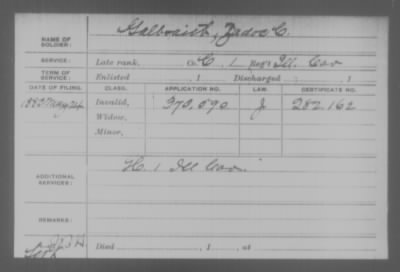 NAME OF SOLDIER: Galbraith, Zadoc C.
SERVICE: Late rank, Co. C, 1 Reg't Ill. Cav
TERM OF SERVICE: Enlisted , 1 Discharged , 1
DATE OF FILING. CLASS. APPLICATION NO. LAW. CERTIFICATE NO.
1880 Invalid, 370,090 J 282,162
Widow,
Minor,
ADDITIONAL SERVICES: H. 1 Ill Cav.
REMARKS:
Died , 1 , at